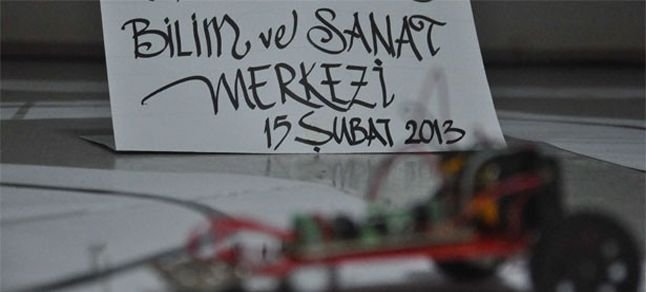 BİLİM ve SANAT
MERKEZİ
15 ŞUBAT 2013